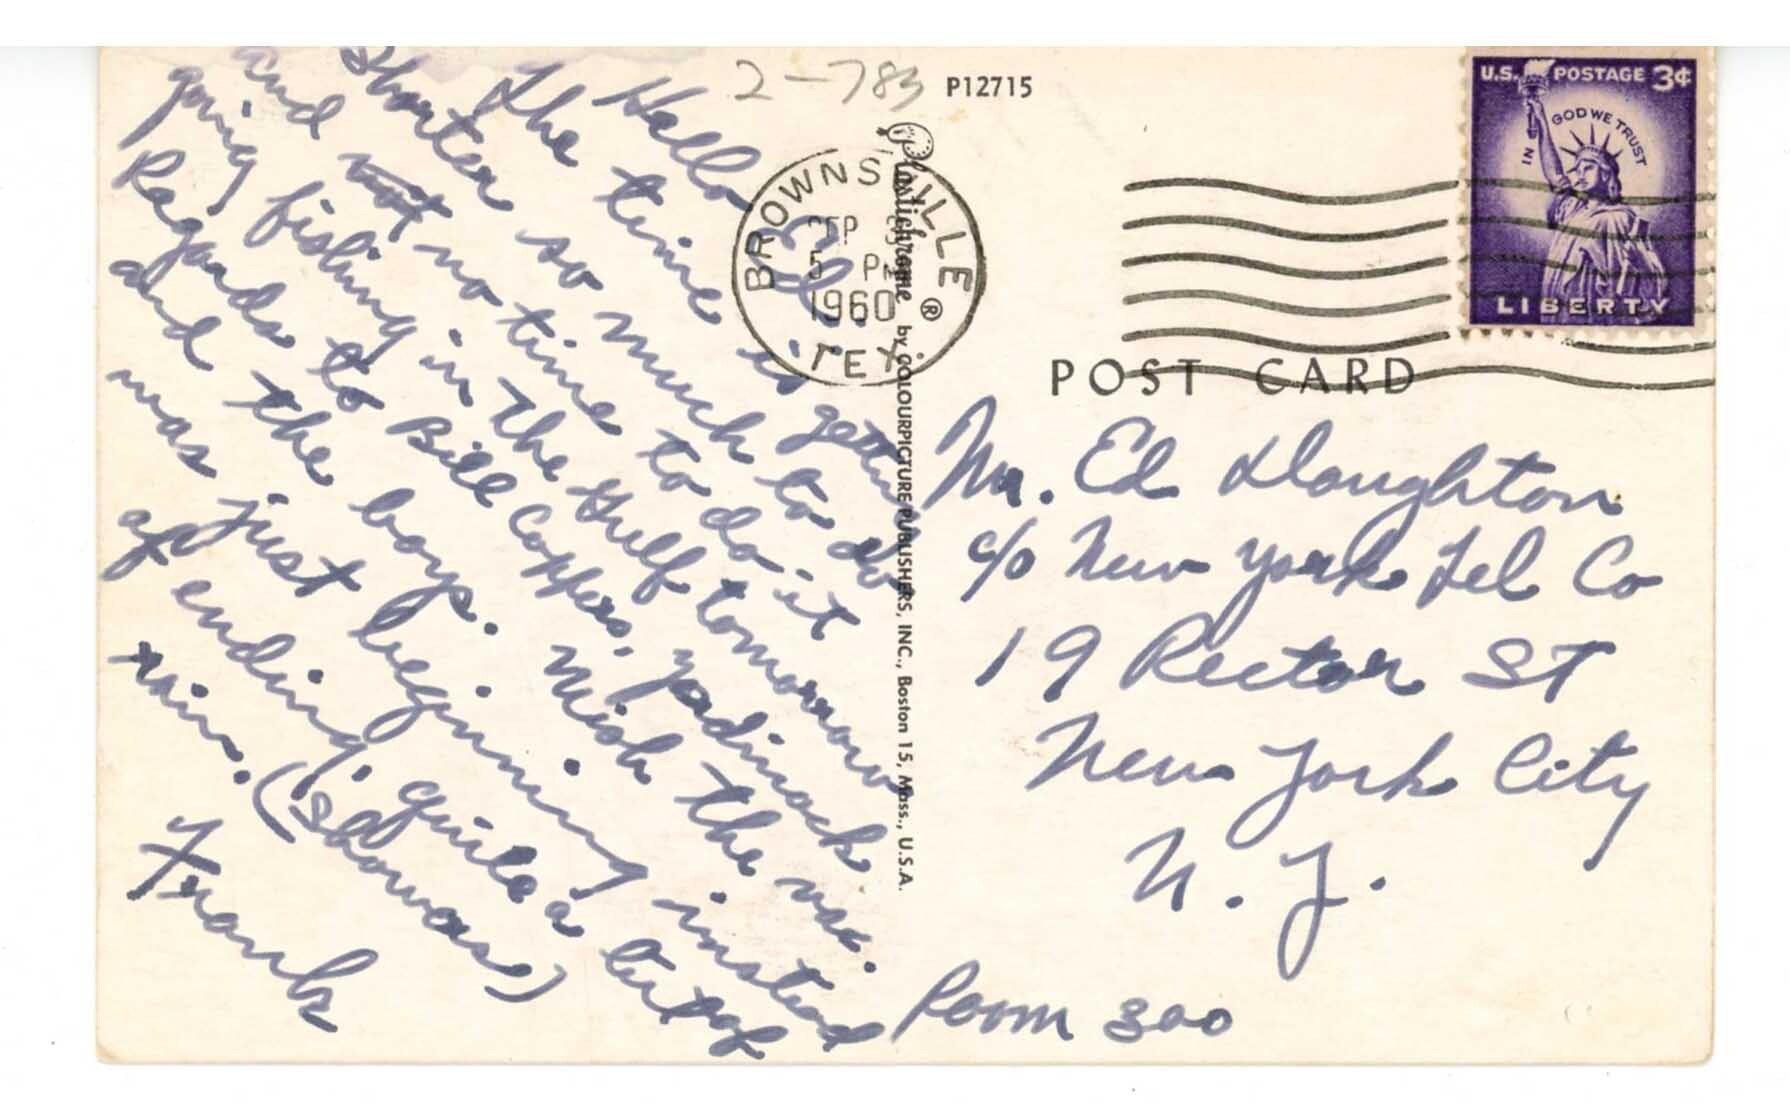 Hello Ed.
The time is getting
shorter so much to do
and not no time to do it
going fishing in the Gulf tomorrow
Regards to Bill Coppers, Yadinack
and the boys. Wish the vac.
was just beginning instead
of ending, quite a bit of
rain. (Showers)
Frank
2-783
P12715
Plastichrome ® by COLOURPICTURE PUBLISHERS, INC., Boston 15, Mass., U.S.A.
BROWNSVILLE
SEP
5 PM
1960
TEX
U.S. POSTAGE 3¢
IN GOD WE TRUST
LIBERTY
POST CARD
Mr. Ed Haughton
c/o New York Tel Co
19 Rector St
New York City
N.Y.
Room 300